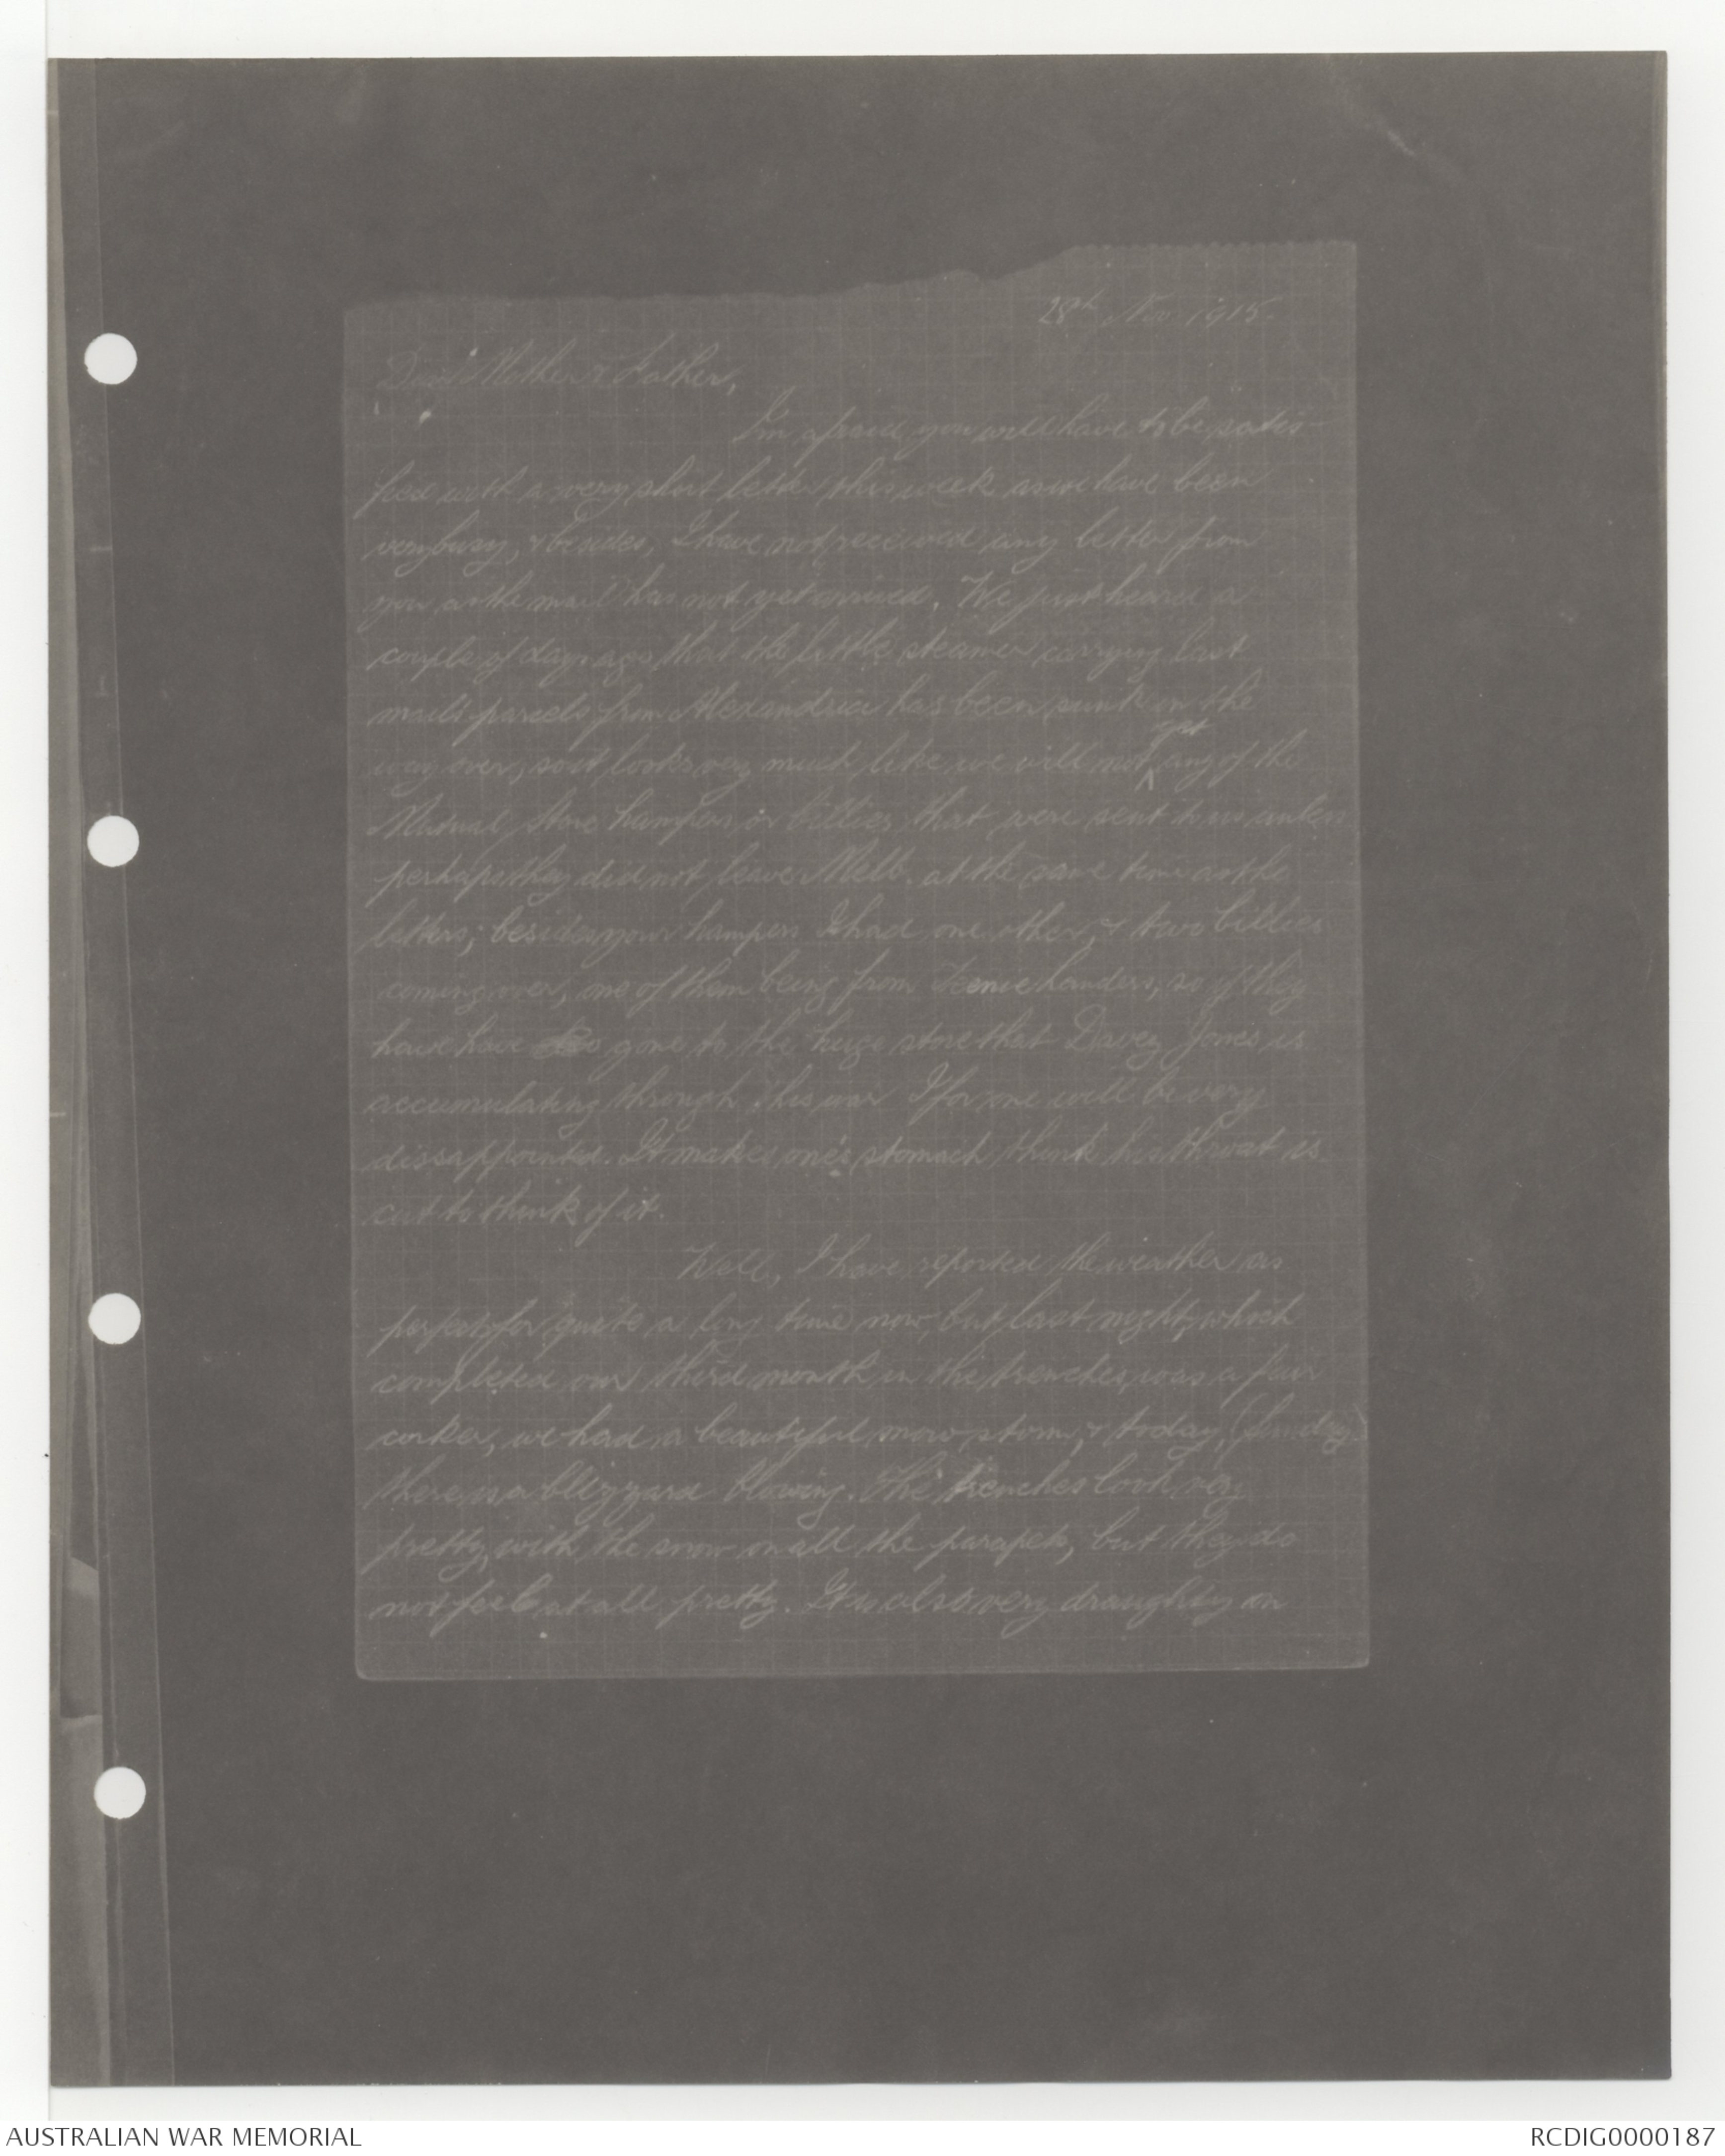 28th Nov. 1915.
Dear Mother & Father,
I'm afraid you will have to be satis-
fied with a very short letter this week as we have been
very busy, & besides, I have not received any letter from
you as the mail has not yet arrived. We just heard a
couple of days ago, that the little steamer carrying last
mails parcels from Alexandria has been sunk on the
get
way over, so it looks very much like we will not any of the
Mutual Store hampers or billies that were sent to us unless
perhaps they did not leave Melb. at the same time as the
letters; besides your hampers I had one other, & two billies
coming over, one of them being from so if they
have have gone to the huge store that Davey Jones is
accumulating through this war I for one will be very
dissappointed. It makes one's stomach think his throat is
cut to think of it.
Well, I have reported the weather as
perfect for quite a long time now, but last night, which
completed our third month in the trenches, was a fair
corker, we had a beautiful snow storm, & today, (Sunday)
there is a blizzard blowing. The trenches look very
pretty, with the snow on all the parapets, but they do
not feel at all pretty. It is also very draughty in
AUSTRALIAN WAR MEMORIAL
RCDIG0000187